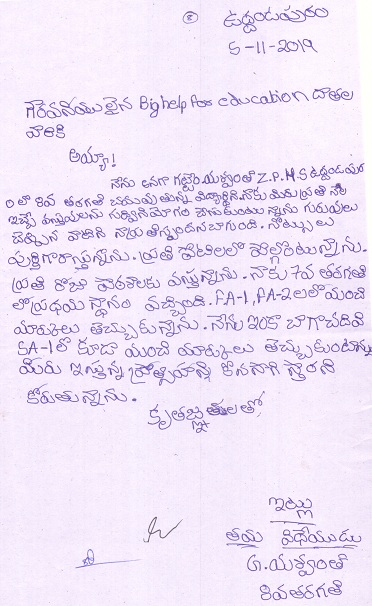 ఉద్దండపురం
5-11-2019
గౌరవనీయులైన Big help for education దాతల
వారికి
అయ్యా!
నేను అనగా గట్టెం.యశ్వంత్ Z.P.H.S ఉద్దండపుర
ం లో 8వ తరగతి చదువుతున్న విద్యార్థిని. నాకు మీరు ప్రతి నెల
ఇచ్చే వస్తువులను సద్వినియోగం చేసుకుంటున్నాను గురువులు
చెప్పిన వాటికి నా ప్రతిస్పందన బాగుంది. నోట్సులు
పూర్తిగా రాస్తున్నాను. ప్రతి పోటీలలో పాల్గొంటున్నాను.
ప్రతి రోజు పాఠశాలకు వస్తున్నాను. నాకు 7వ తరగతి
లో ప్రథమ స్థానం వచ్చింది. FA-1, FA-2 లలో మంచి
మార్కులు తెచ్చుకున్నాను. నేను ఇంకా బాగా చదివి
SA-1 లో కూడా మంచి మార్కులు తెచ్చుకుంటాను
మీరు ఇస్తున్న ప్రోత్సాహాన్ని కొనసాగిస్తారని
కోరుతున్నాను.
కృతజ్ఞతలతో
ఇట్లు
తమ విధేయుడు
G.యశ్వంత్
8వ తరగతి